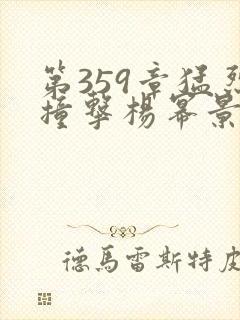 第359章猛烈
撞撃楊冪景
德馬雷斯特皮